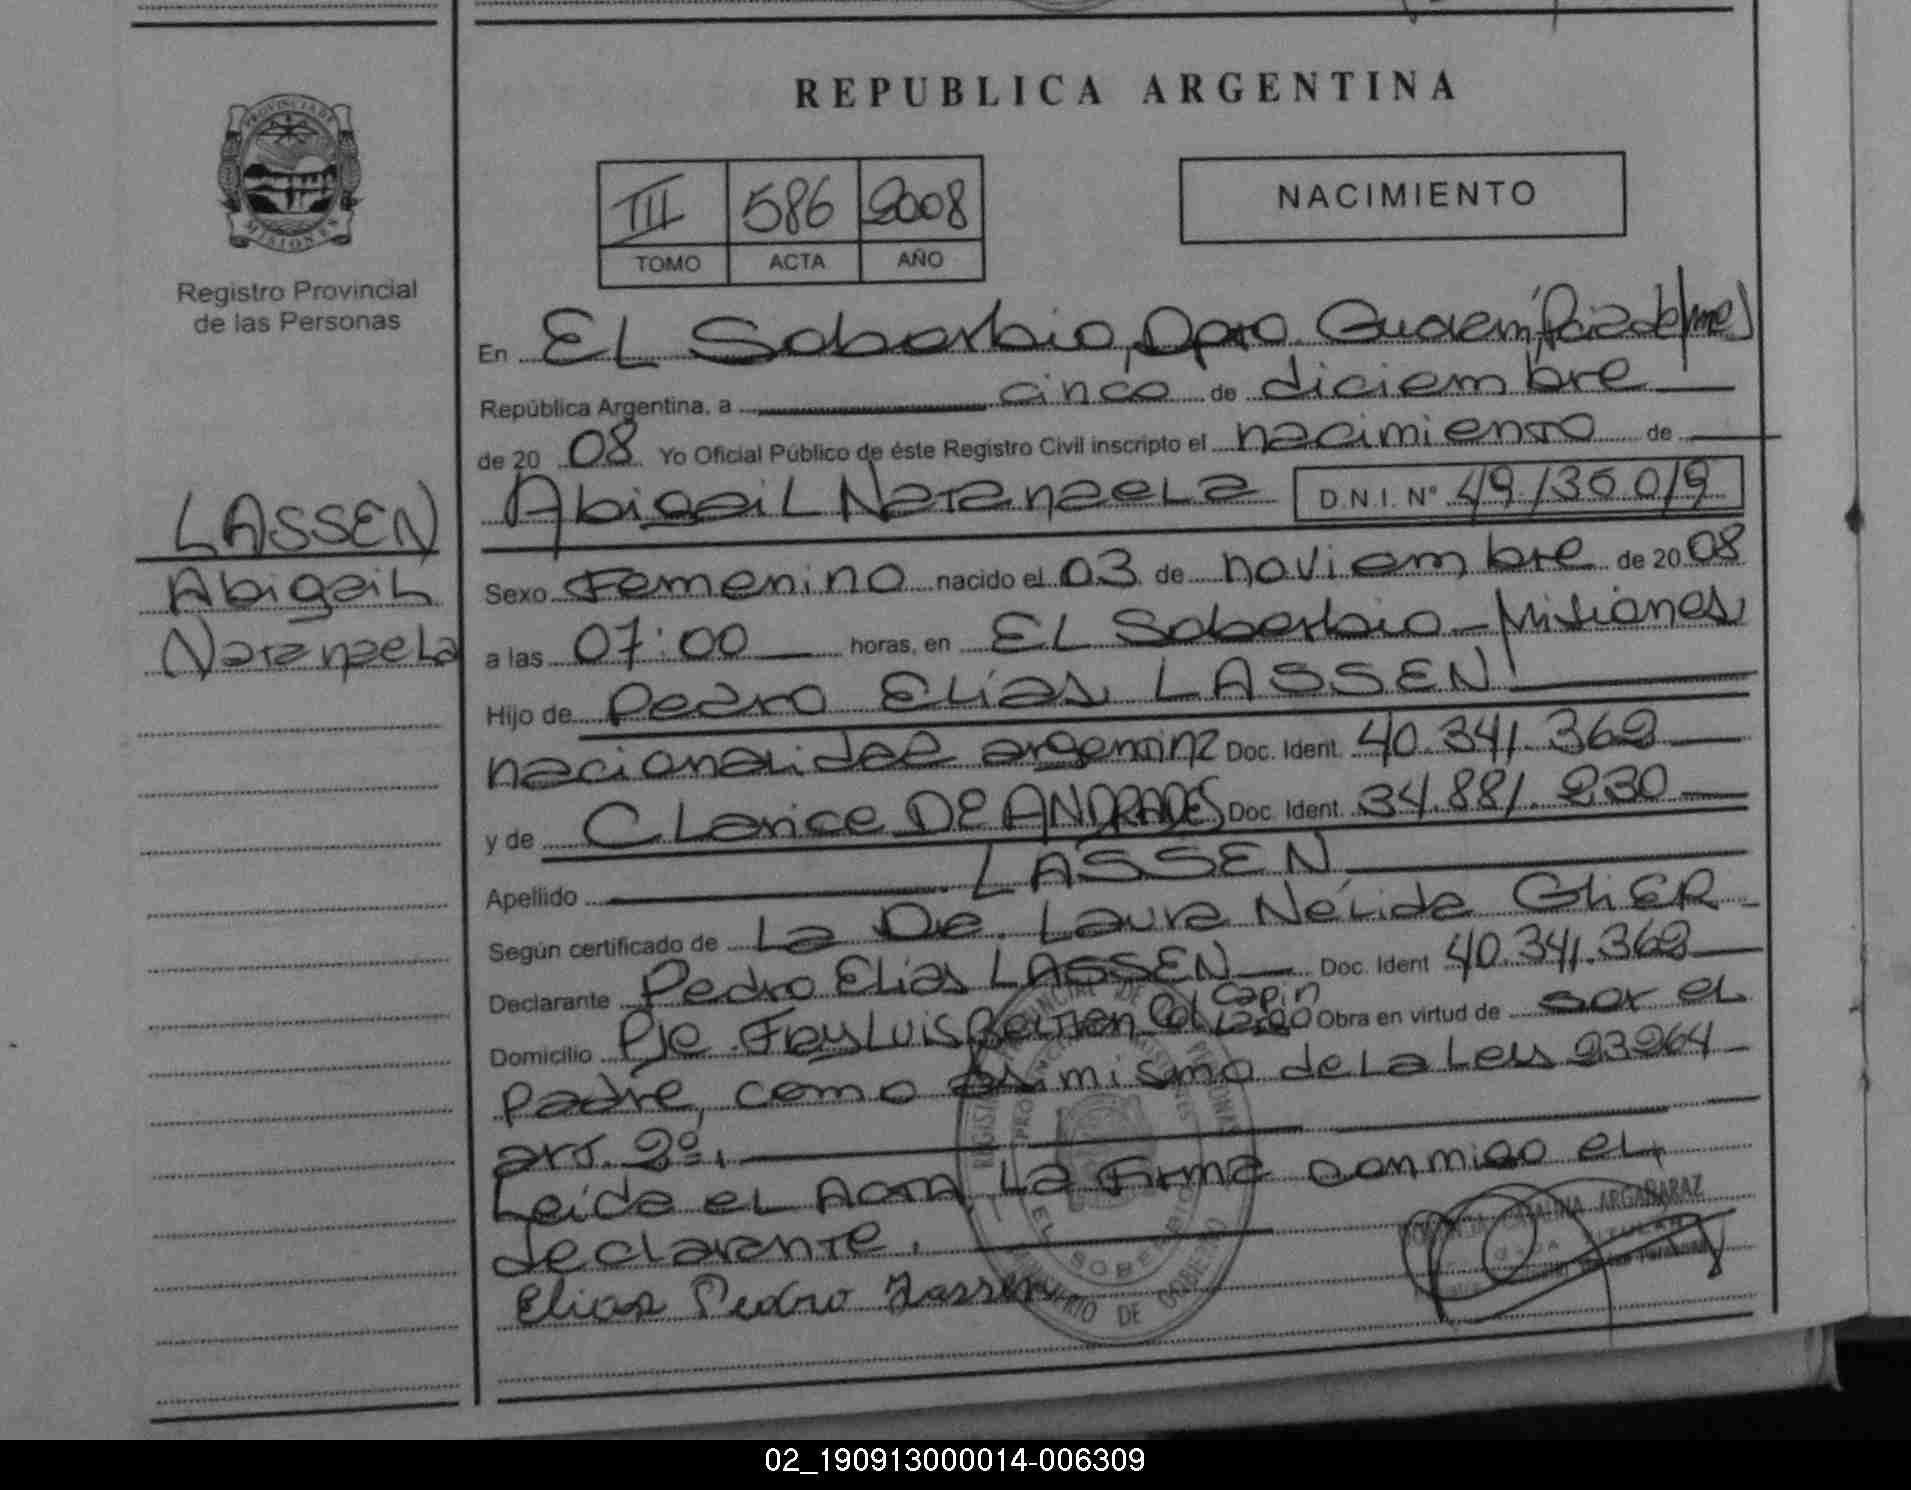 REPUBLICA ARGENTINA
PROVINCIA DE
MISIONES
Registro Provincial
de las Personas
III 586 2008
TOMO ACTA AÑO
NACIMIENTO
En EL Soberbio, Dpto. Guaraní,
República Argentina, a cinco de diciembre
de 20 08 Yo Oficial Público de éste Registro Civil inscripto el nacimiento de
Abigail Natanaela D.N.I. Nº 49.135.019
LASSEN
Abigail
Natanaela
Sexo Femenino nacido el 03 de noviembre de 20 08
a las 07:00 horas, en EL Soberbio - Misiones
Hijo de Pedro Elías LASSEN
nacionalidad argentina Doc. Ident. 40.341.362
y de CLarice DE ANDRADES Doc. Ident. 34.881.230
Apellido LASSEN
Según certificado de La Dra. Laura Nélida GHER
Declarante Pedro Elías LASSEN Doc. Ident 40.341.362
Domicilio Pje. Fray Luis Beltrán Col Capin Obra en virtud de ser el
padre, como asimismo de La Ley 23264
art. 2º.
Leída el ACTA, La Firma conmigo el
declarante.
Elias Pedro Lassen
REGISTRO PROVINCIAL DE LAS PERSONAS
PROVINCIA DE MISIONES
EL SOBERBIO
MINISTERIO DE GOBIERNO
CATALINA ARGAÑARAZ
02_190913000014-006309